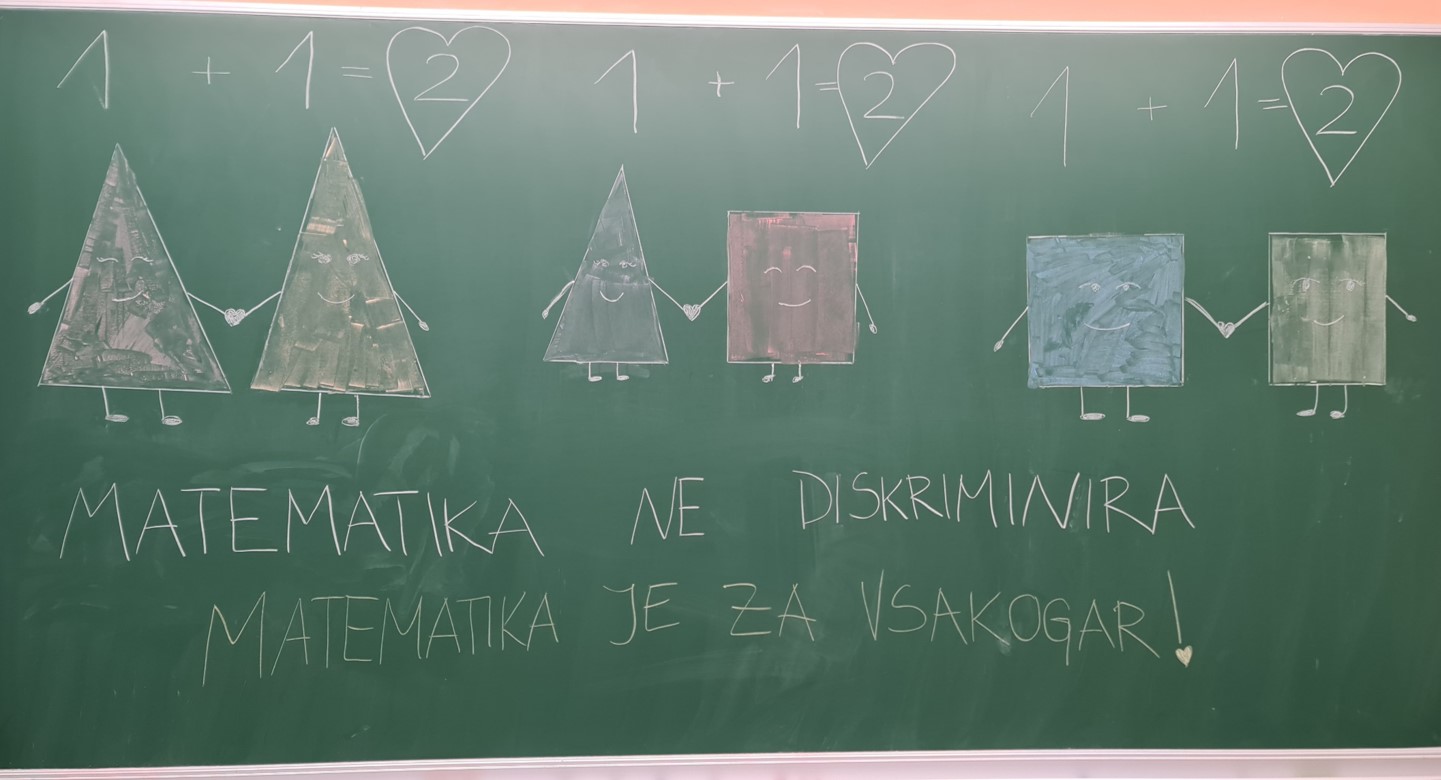 1 + 1 = 2 1 + 1 = 2 1 + 1 = 2
MATEMATIKA NE DISKRIMINIRA
MATEMATIKA JE ZA VSAKOGAR!